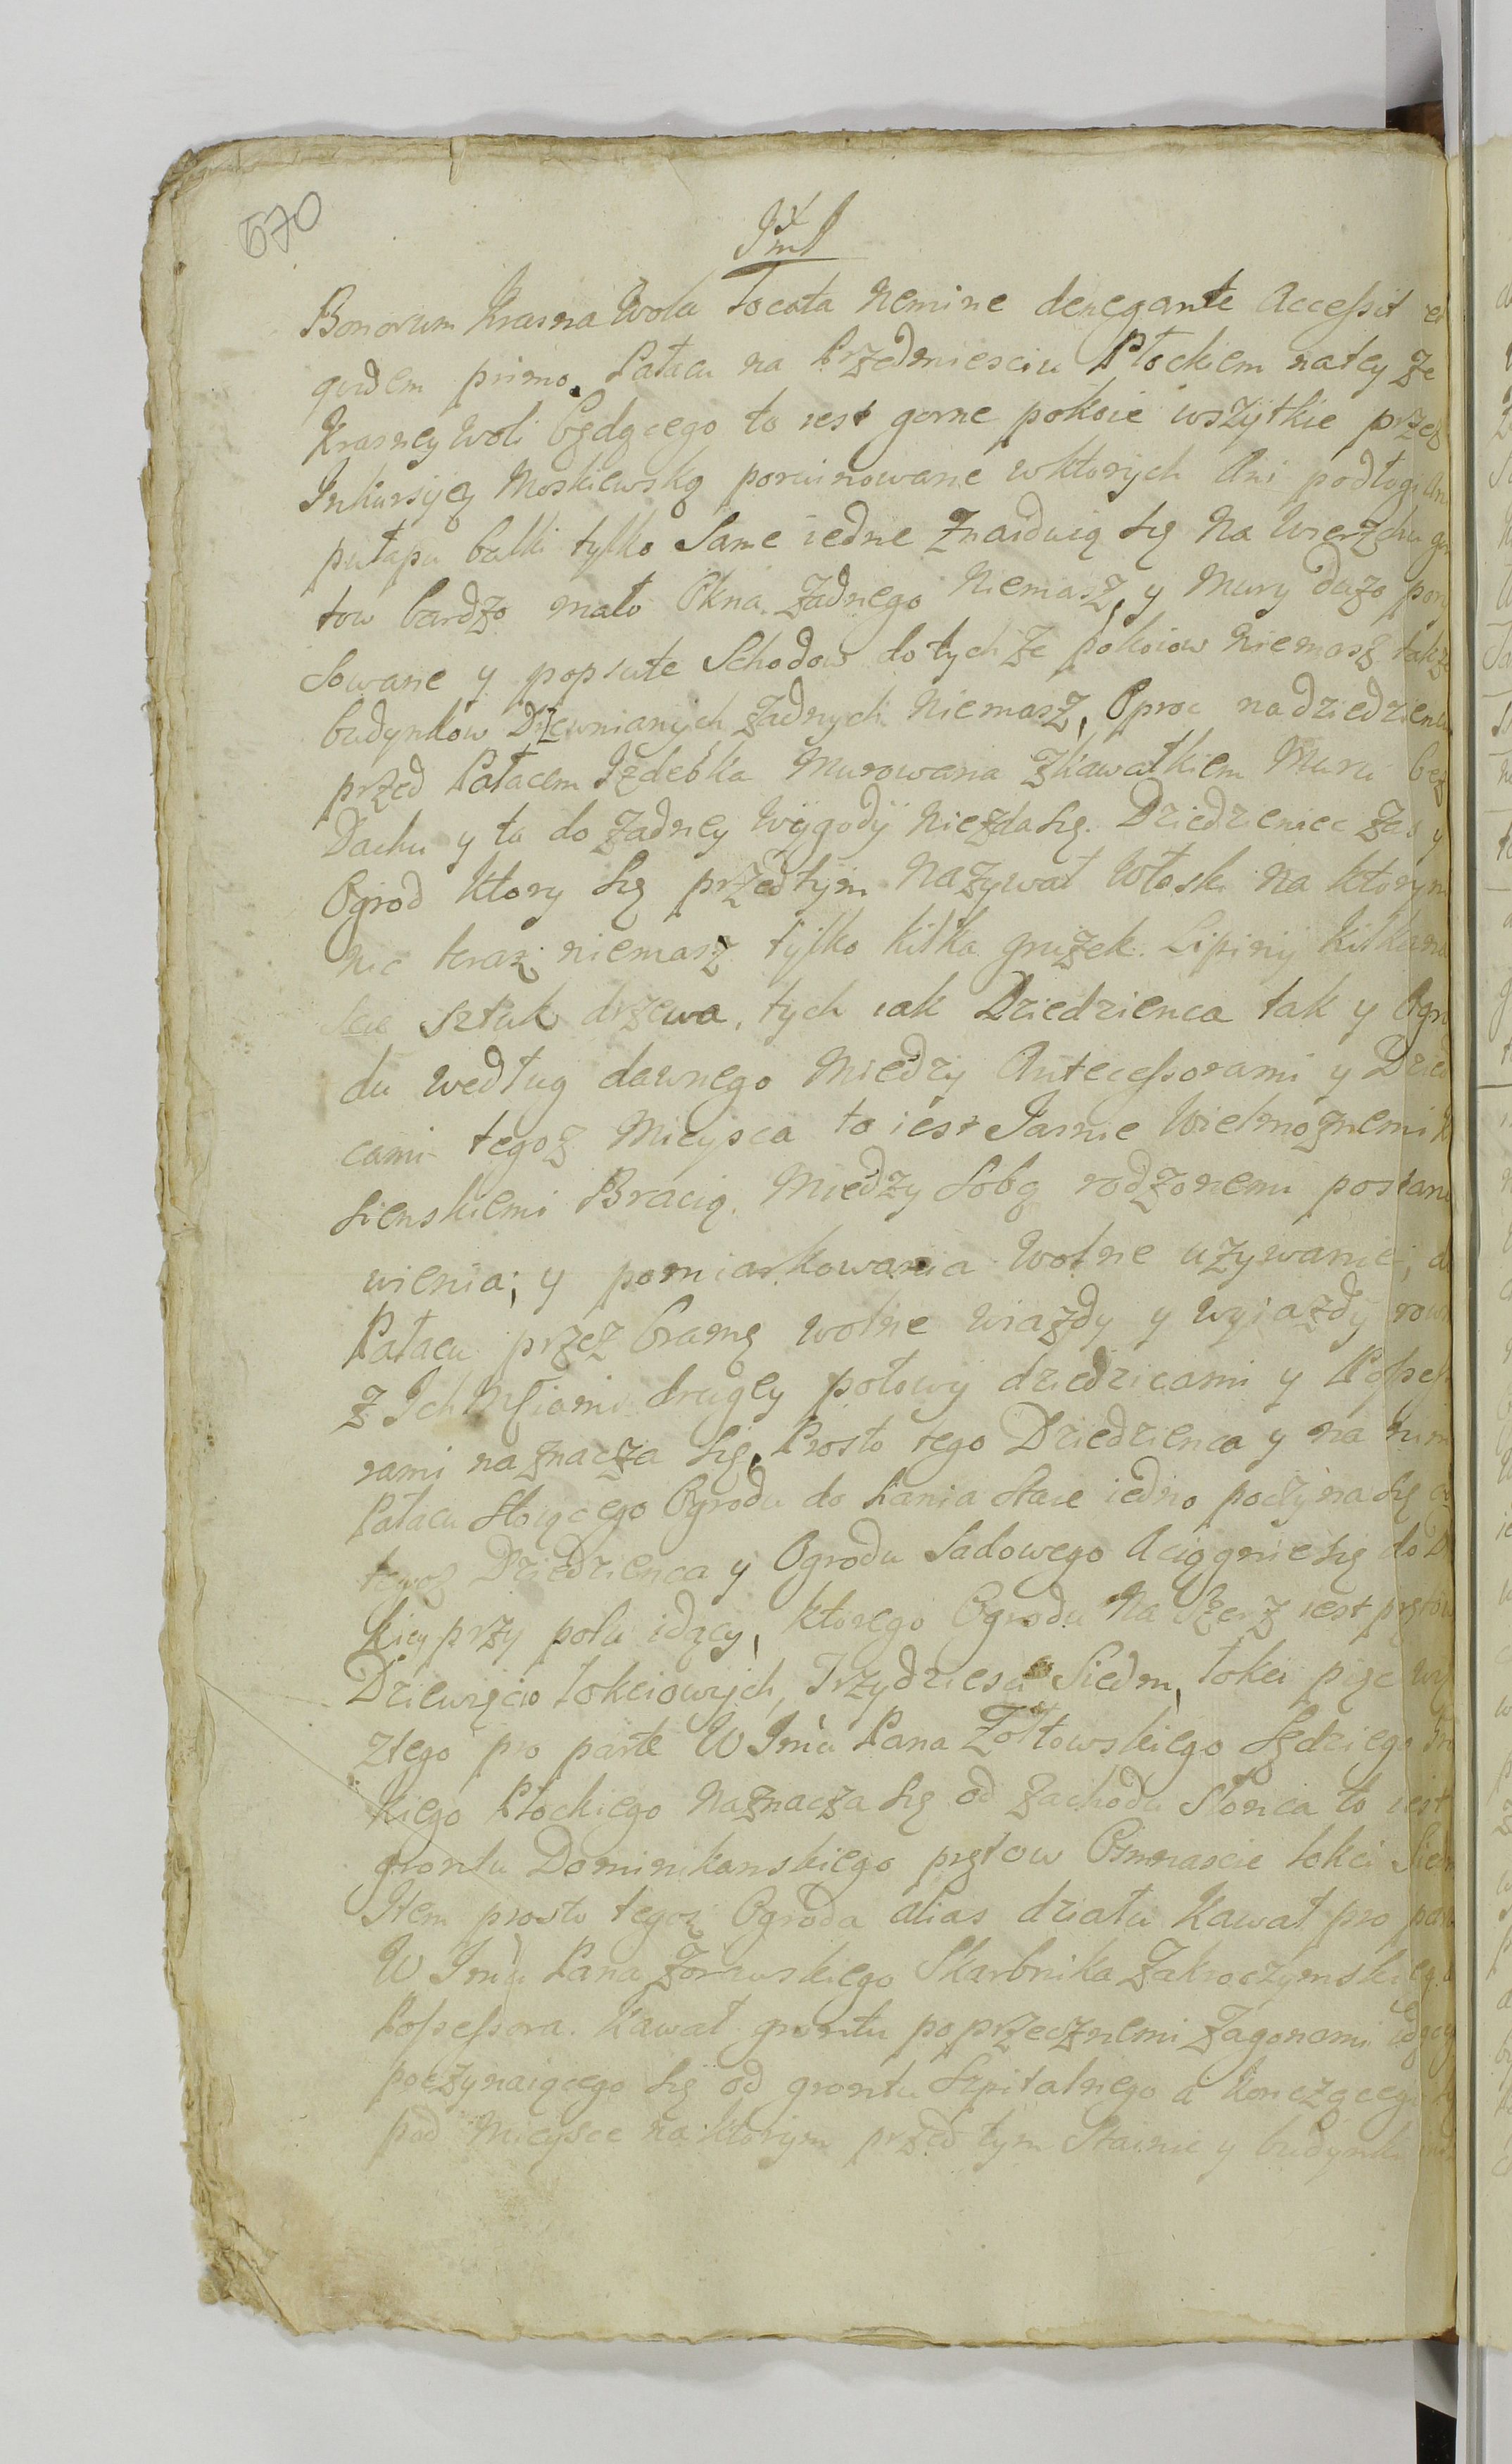 570
Bonorum Krasna Wola locata Nemine denegante Accessit et
quidem primo. Pałacu na Przedmiesciu Płockiem na tey ze
Krasney Woli będącego to iest gorne pokoie wszytkie przez
Inkursyią Moskiewską poruinowane w ktorych Ani podłogi Ani
pułapu balki tylko Same iedne znaiduią się Na Wierzchu gon
tow bardzo mało Okna zadnego Niemasz, y Mury duzo pory
sowane y popsute Schodow do tych ze pokoiow Niemasz takze
budynkow Drzewnianych zadnych Niemasz, Oproc na dziedziencu
przed Pałacem Izdebka Murowana z kawałkiem Muru bez
Dachu y ta do zadney Wygody Niezda się. Dziedzieniec zas y
Ogrod ktory się przedtym Nazywał Włoski Na ktorym
nic teraz niemasz tylko kilka gruszek Lipiny kilkana
scie sztuk drzewa, tych iak Dziedzienca tak y Ogro
du według dawnego Miedzy Antecessorami y Dzied
cami tegoz Mieysca to iest Jasnie Wielmoznemi
sienskiemi Bracią Miedzy Sobą rodzonemi postano
wienia; y pomiarkowania Wolne uzywanie, do
Pałacu przez bramę wolne wiazdy y wyiazdy rown
z Ich Mściami drugey połowy dziedzicami y Possess
rami naznacza się, Prosto tego Dziedzienca y na nim
Pałacu stoiącego Ogrodu do siania staie iedno poczyna się od
tegoz Dziedzienca y Ogrodu Sadowego A ciągnie się do D
kiey przy polu idący, ktorego Ogrodu Na Szerz iest prętow
Dziewięcio łokciowych, Trzydziesci Siedm, łokci pięc
z tego pro parte W Jmci Pana Zołtowskiego Sędziego
kiego Płockiego Naznacza się od Zachodu Słonca to iest
grontu Dominikanskiego prętow Osmnascie łokci Siedm
Item prosto tegoz Ogroda alias działu Kawał pro parte
W Jmci Pana Zorawskiego Skarbnika Zakroczymskiego
Possessora. Kawał grontu poprzecznemi Zagonami idącego
poczynaiącego się od grontu Szpitalnego a konczącego
pod Mieysce na ktorym przed tym Stainie y budynki